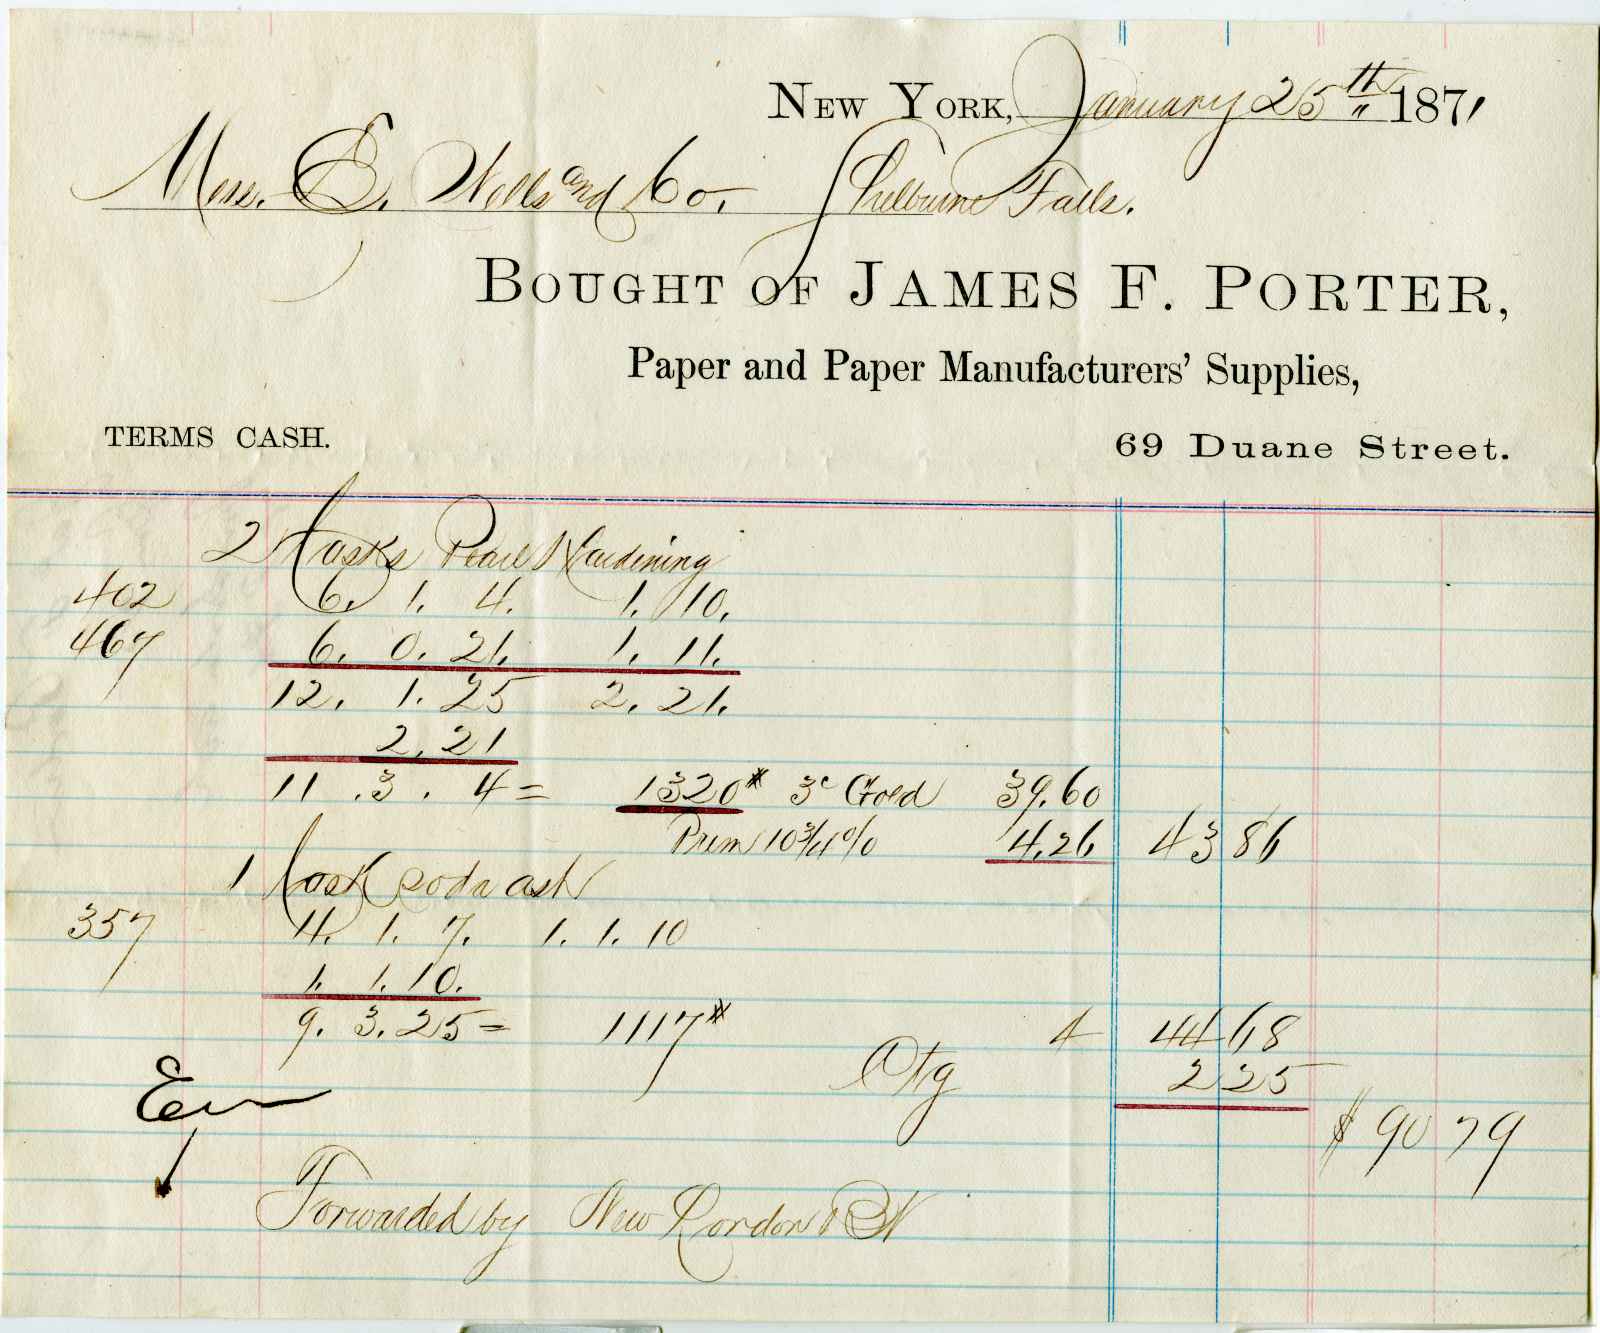 New York, January 25th 1871
Mess. E. Wells and Co. Shelburne Falls.
Bought of James F. Porter,
Paper and Paper Manufacturers' Supplies,
TERMS CASH. 69 Duane Street.
2 Casks Pearl Hardening
402 6. 1. 4. 1. 10.
467 6. 0. 21. 1. 11.
12. 1. 25 2. 21.
2. 21
11. 3. 4 = 1320# 3c Gold 39.60
Prem 10 3/4 % 4.26 43 86
1 Cask soda ash
357 11. 1. 7. 1. 1. 10
1. 1. 10.
9. 3. 25 = 1117# 4 44 68
Ctg 2 25
$ 90 79
Forwarded by New London Bt